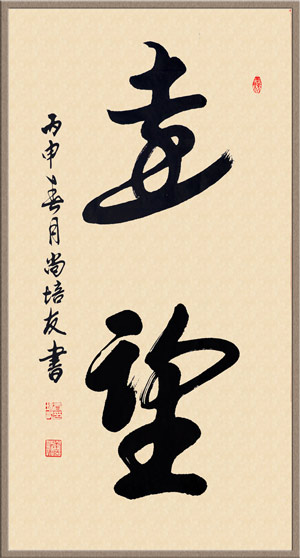 遠望
丙申春月尚培友書